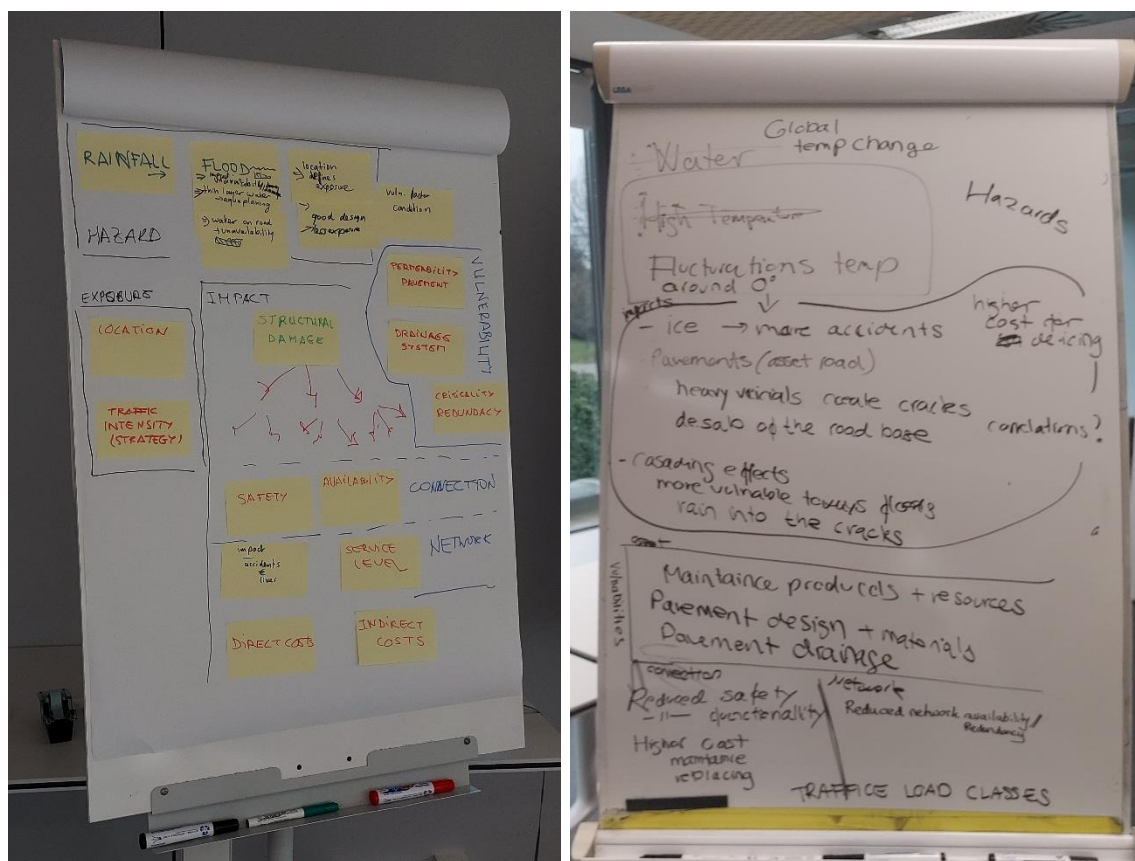 RAINFALL
→
FLOOD
→ thin layer water
→ aquaplaning
→ water on road
→ unavailability
→ location
defines
exposure
→
good design
→ less exposure
vuln. factor
condition
HAZARD
EXPOSURE
LOCATION
TRAFFIC
INTENSITY
(STRATEGY)
IMPACT
STRUCTURAL
DAMAGE
VULNERABILITY
PERMEABILITY
PAVEMENT
DRAINAGE
SYSTEM
CRITICALITY
REDUNDANCY
SAFETY
AVAILABILITY
CONNECTION
impact
accidents
€
lives
SERVICE
LEVEL
NETWORK
DIRECT COSTS
INDIRECT
COSTS
LEGA
Global
temp change
Water
High Temperature
Hazards
Flucturations temp
around 0°
impacts
- ice → more accidents
higher
cost for
deicing
- Pavements (asset road)
heavy create cracks
of the road base
correlations?
- casading effects
more vulnable
rain into the cracks
asset
Vulnabilities
Maintaince products + resources
Pavement design + materials
Pavement drainage
connection
Reduced safety
-"- functonality
Higher cost
maintance
replacing
Network
Reduced network availability/
Redundancy
TRAFFICE LOAD CLASSES